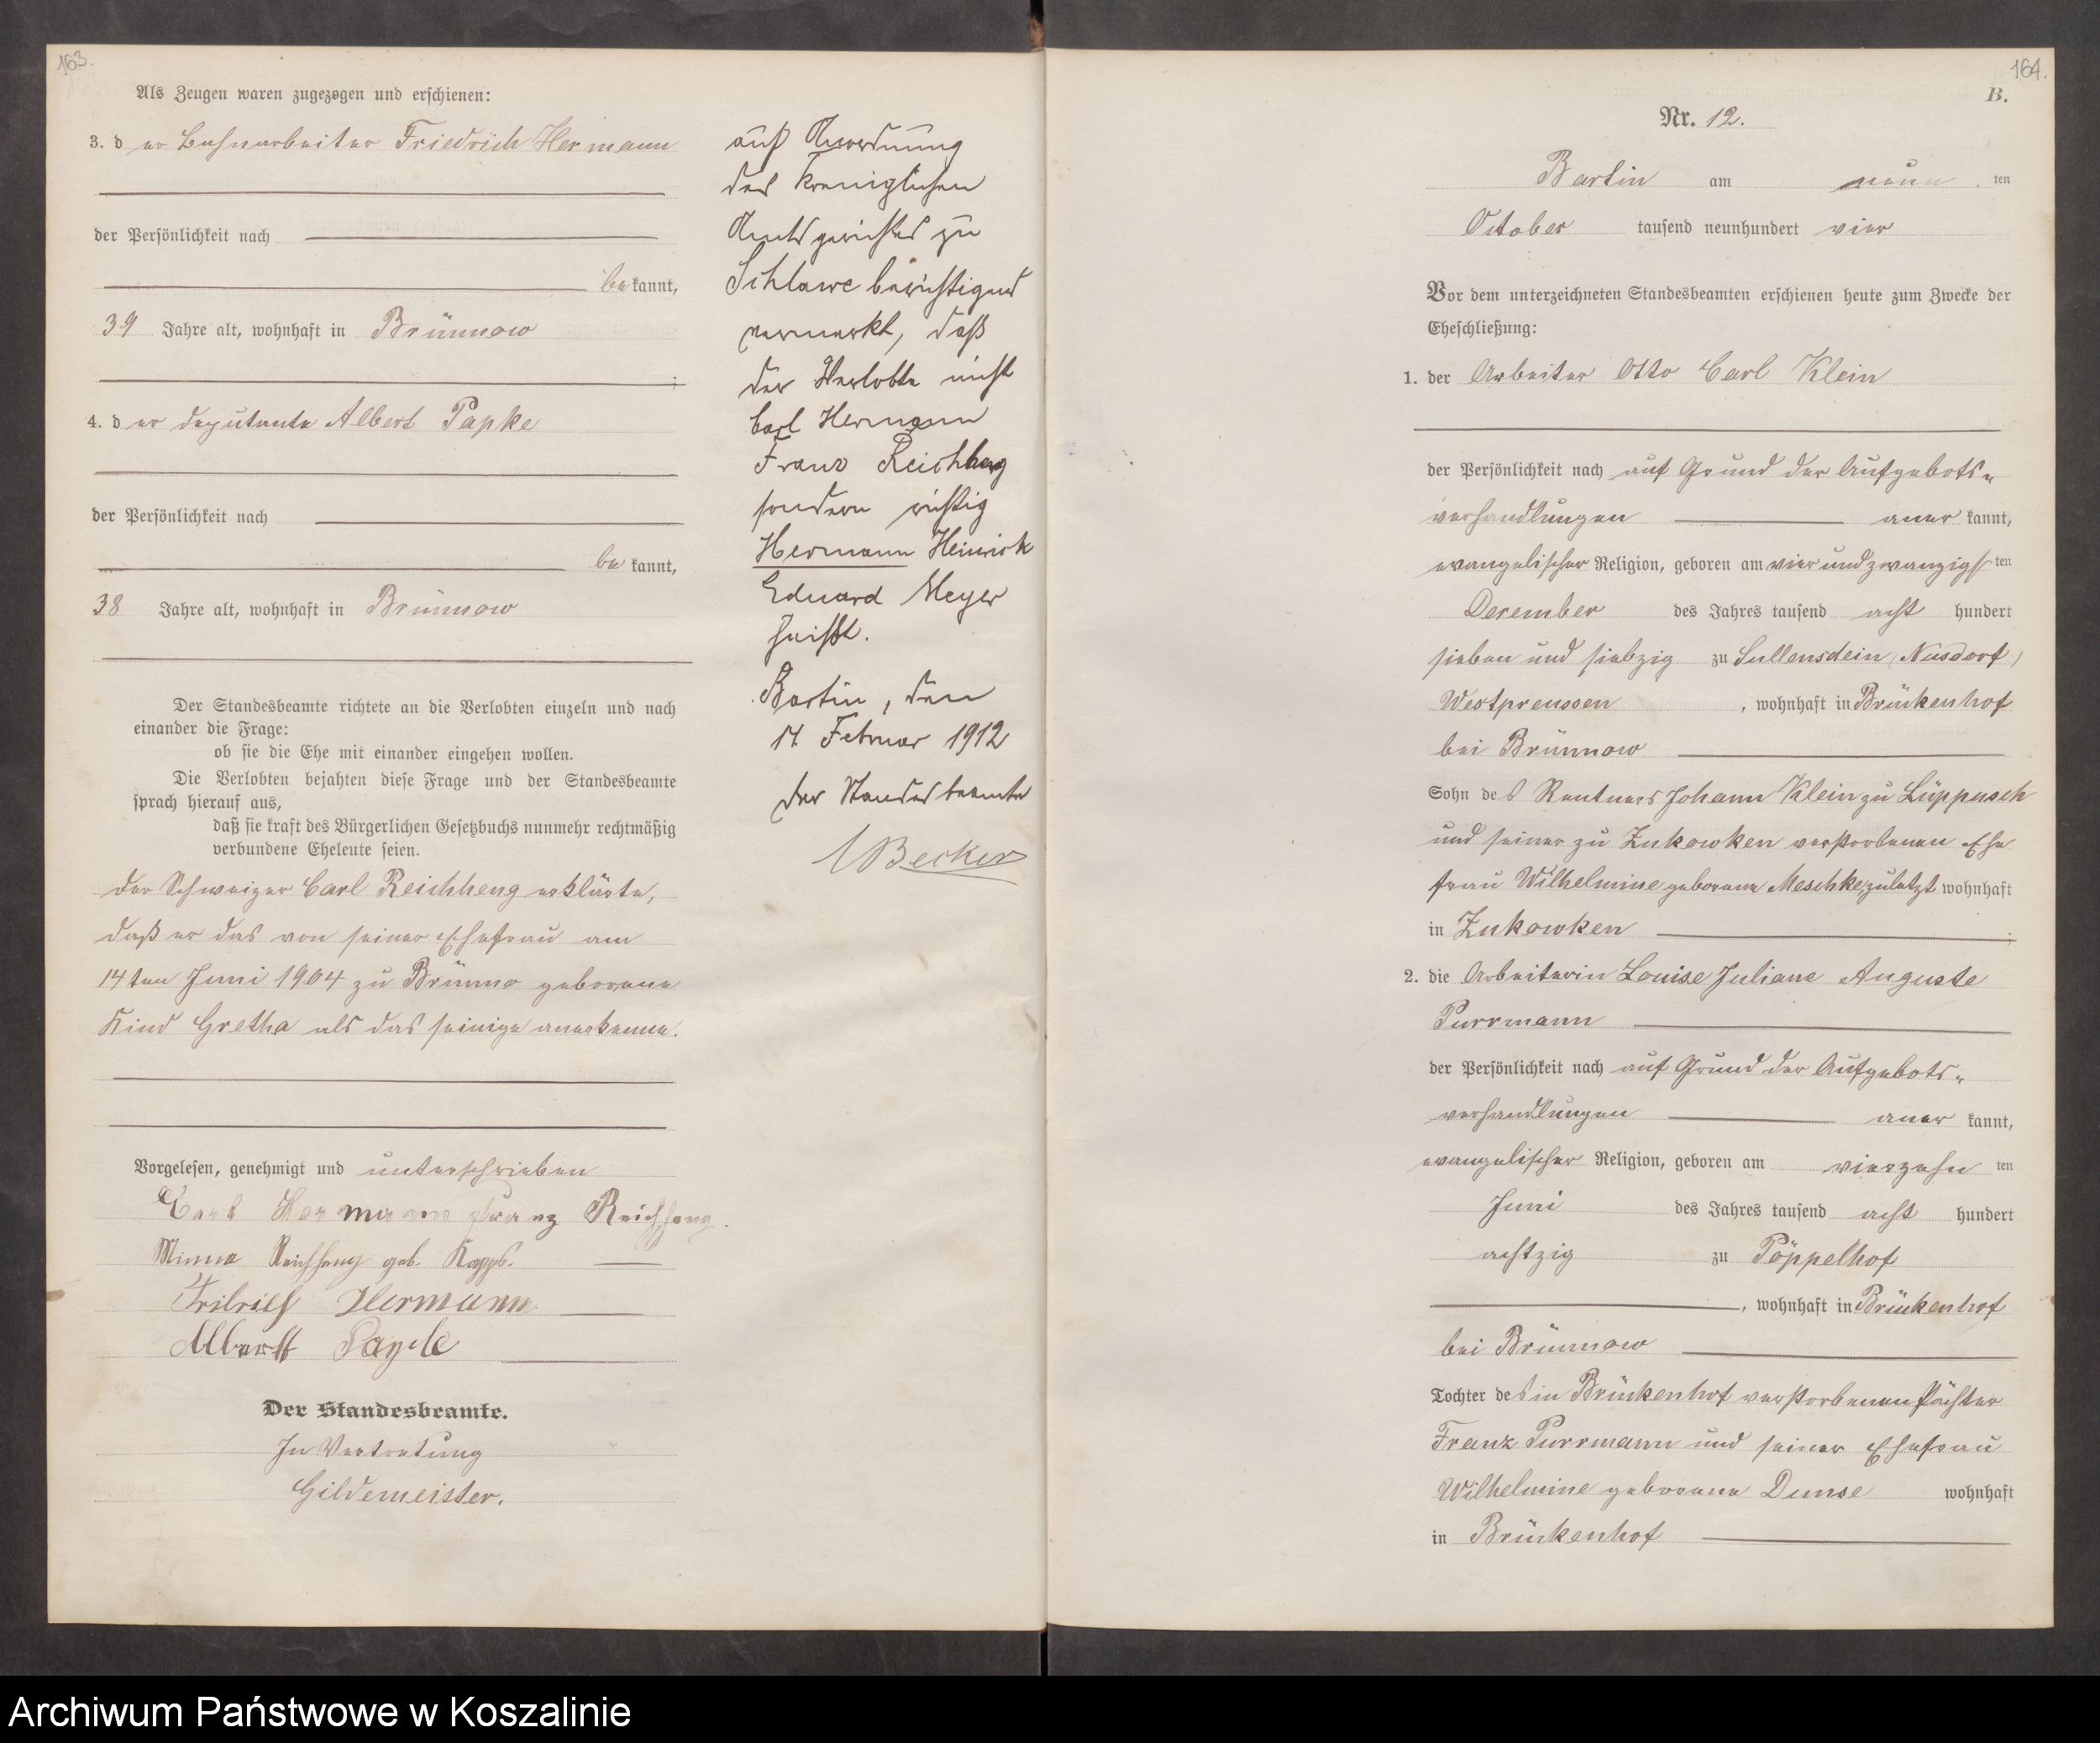 163.
Als Zeugen waren zugezogen und erschienen:
3. d er Bahnarbeiter Friedrich Hermann
der Persönlichkeit nach
be kannt,
39 Jahre alt, wohnhaft in Brünnow
;
4. d er Deputante Albert Papke
der Persönlichkeit nach
be kannt,
38 Jahre alt, wohnhaft in Brünnow
Der Standesbeamte richtete an die Verlobten einzeln und nach
einander die Frage:
ob sie die Ehe mit einander eingehen wollen.
Die Verlobten bejahten diese Frage und der Standesbeamte
sprach hierauf aus,
daß sie kraft des Bürgerlichen Gesetzbuchs nunmehr rechtmäßig
verbundene Eheleute seien.
Der Schweizer Carl Reichheng erklärte,
daß er das von seiner Ehefrau am
14ten Juni 1904 zu Brünno geborene
Kind Gretha als das seinige anerkenne.
Vorgelesen, genehmigt und unterschrieben
Carl Hermann Franz Reichheng.
Minna Reichheng geb. Kapps.
Fridrich Hermann
Albertt Papke
Der Standesbeamte.
In Vertretung
Gildemeister.
auf Anordnung
des Königlichen
Amtsgerichtes zu
Schlawe berichtigend
vermerkt, daß
der Verlobte nicht
Carl Hermann
Franz Reichheng
sondern richtig
Hermann Heinrich
Eduard Meyer
heißt.
Bartin, den
14. Februar 1912
Der Standesbeamte
Becker
164.
B.
Nr. 12.
Bartin am neun ten
October tausend neunhundert vier
Vor dem unterzeichneten Standesbeamten erschienen heute zum Zwecke der
Eheschließung:
1. der Arbeiter Otto Carl Klein
der Persönlichkeit nach auf Grund der Aufgebots-
verhandlungen aner kannt,
evangelischer Religion, geboren am vier und zwanzigs ten
Dezember des Jahres tausend acht hundert
sieben und siebzig zu Sullensdein (Nusdorf)
Westpreussen , wohnhaft in Brückenhof
bei Brünnow
Sohn des Rentners Johann Klein zu Lüppusch
und seiner zu Zukowken verstorbenen Ehe
frau Wilhelmine geborene Meschke, zuletzt wohnhaft
in Zukowken ;
2. die Arbeiterin Louise Juliane Auguste
Purrmann
der Persönlichkeit nach auf Grund der Aufgebots-
verhandlungen aner kannt,
evangelischer Religion, geboren am vierzehn ten
Juni des Jahres tausend acht hundert
achtzig zu Pöppelhof
, wohnhaft in Brückenhof
bei Brünnow
Tochter des in Brückenhof verstorbenen Pächter
Franz Purrmann und seiner Ehefrau
Wilhelmine geborene Dumse wohnhaft
in Brückenhof
Archiwum Państwowe w Koszalinie